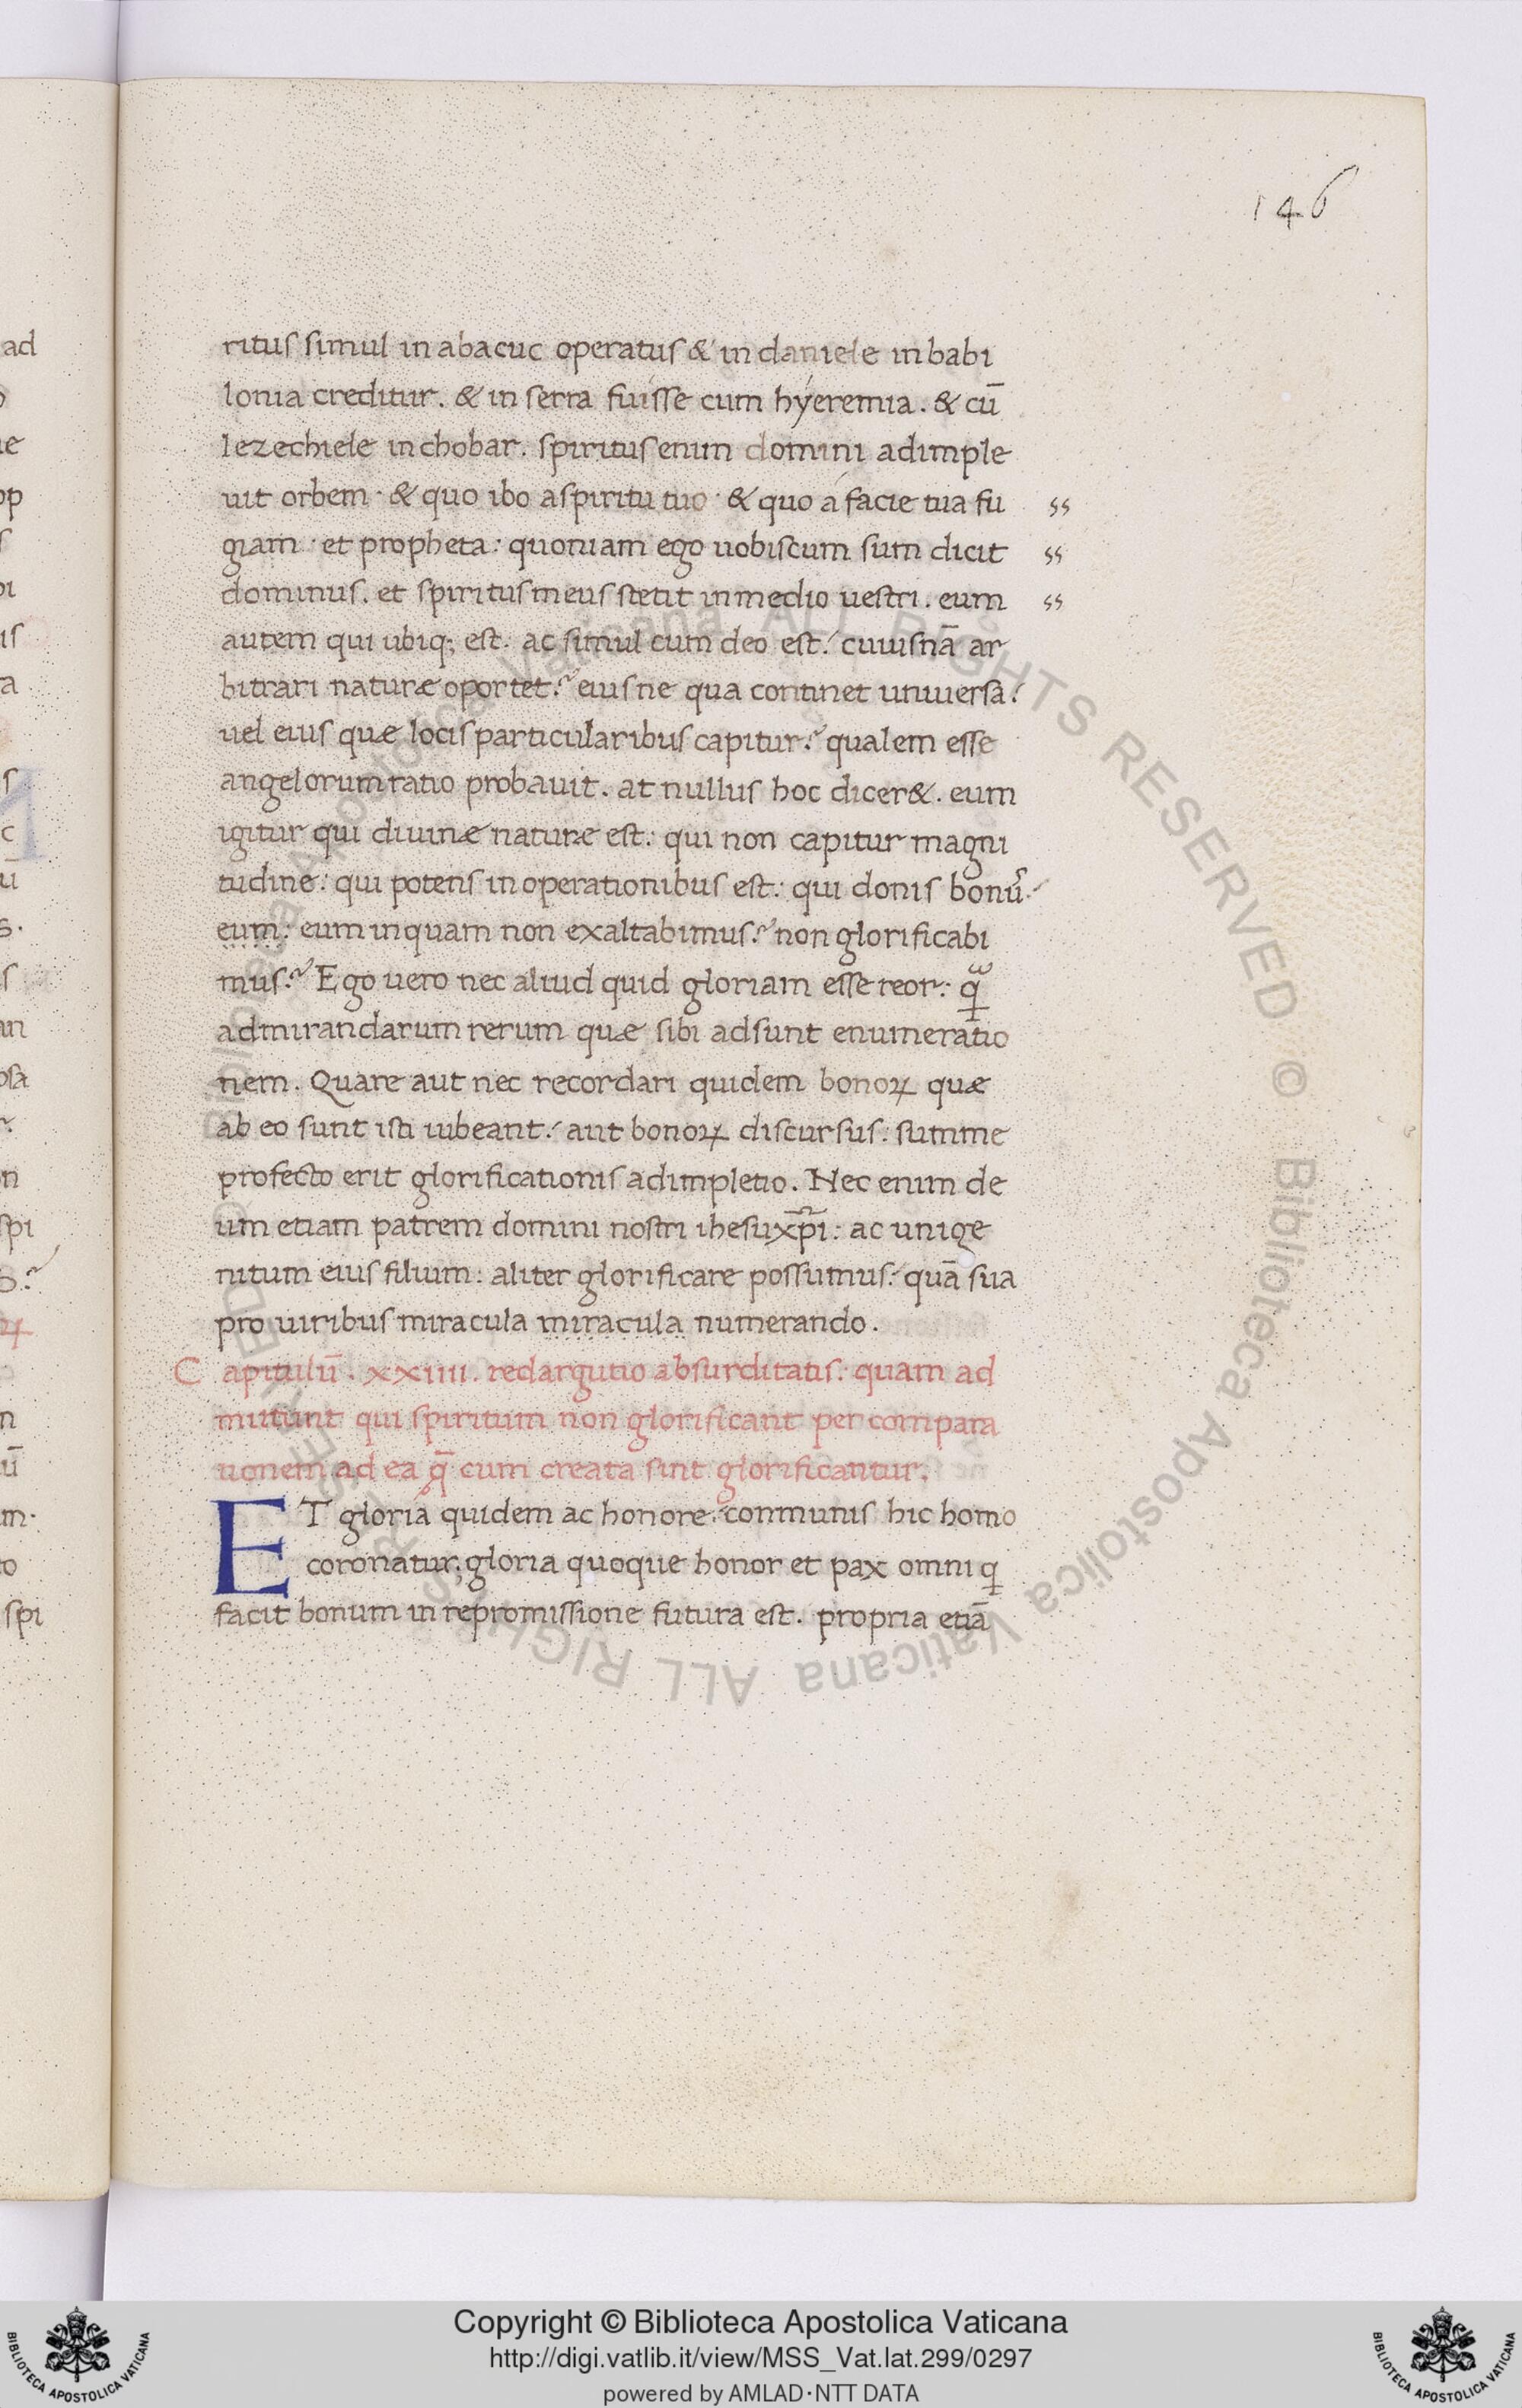 146
ritus simul in abacuc operatus & in daniele in babi
lonia creditur. & in serra fuisse cum hyeremia. & cū
Iezechiele in chobar. spiritus enim domini adimple
uit orbem · & quo ibo a spiritu tuo · & quo a facie tua fu
giam · et propheta: quoniam ego uobiscum sum dicit
dominus. et spiritus meus stetit in medio uestri. eum
autem qui ubiq; est. ac simul cum deo est: cuiusnā ar
bitrari naturæ oportet? eius ne qua continet uniuersa:
uel eius quæ locis particularibus capitur? qualem esse
angelorum ratio probauit. at nullus hoc dicer&. eum
igitur qui diuinæ naturæ est: qui non capitur magni
tudine: qui potens in operationibus est: qui donis bonus
eum: eum inquam non exaltabimus? non glorificabi
mus? Ego uero nec aliud quid gloriam esse reor: ꝗ
admirandarum rerum quæ sibi adsunt enumeratio
nem. Quare aut nec recordari quidem bonoꝝ quæ
ab eo sunt isti iubeant: aut bonoꝝ discursus: summe
profecto erit glorificationis adimpletio. Nec enim de
um etiam patrem domini nostri ihesu xp̄i: ac unige
nitum eius filium: aliter glorificare possumus: quā sua
pro uiribus miracula miracula numerando.
Capitulū. xxiiii. redargutio absurditatis: quam ad
mittunt qui spiritum non glorificant per compara
tionem ad ea q̄ cum creata sint glorificantur.
ET gloria quidem ac honore: communis hic homo
coronatur; gloria quoque honor et pax omni ꝗ
facit bonum in repromissione futura est. propria etiā
Copyright © Biblioteca Apostolica Vaticana
http://digi.vatlib.it/view/MSS_Vat.lat.299/0297
powered by AMLAD·NTT DATA